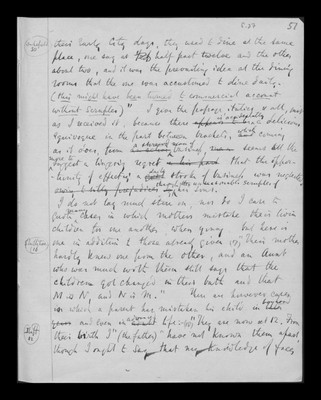 5.27 51
their early City days, they used to dine at the same
place, one say at half past twelve and the other
about two, and it was the prevailing idea at the dining
rooms that the one was accustomed to dine twice daily.
(This might have been turned to commercial account
without scruples)." I give the passage, italics & all, just
as I received it, because there is delicious
equivoque in the part between brackets, which coming
as it does, from a shrewd man of business, seems all the
more to suggest a lingering regret that the oppor-
-tunity of effecting a stroke of business was neglected
through unreasonable scruples of
I do not lay much stress on, nor do I care to
quote cases in which mothers mistake their twin
children for one another when young but here is
one in addition to those already given "Their mother
hardly knew one from the other, and an Aunt
who was much with them still says that the
children got changed in their bath and that
M is N, and N is M." Here are however cases
in which a parent has mistaken his child in boyhood
and even in advanced life "They are now at 52. From
their birth I" (the father) "have not known them apart
though I ought to say that my knowledge of faces